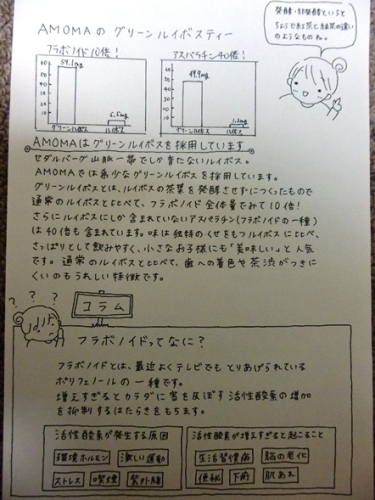 AMOMAの グリーンルイボスティー
発酵・非発酵というと
ちょうど紅茶と緑茶の違い
のようなものね。
フラボノイド10倍！
アスパラチン40倍！
59.1mg
49.9mg
グリーンルイボス ルイボス
グリーンルイボス ルイボス
AMOMAはグリーンルイボスを採用しています
セダルバーグ山脈一帯でしか育たないルイボス。
AMOMAでは希少なグリーンルイボスを採用しています。
グリーンルイボスとは、ルイボスの茶葉を発酵させずにつくったもので
通常のルイボスと比べて、フラボノイド全体量でみて10倍！
さらにルイボスにしか含まれていないアスパラチン(フラボノイドの一種)
は40倍も含まれています。味は独特のくせをもつルイボスに比べ、
さっぱりとして飲みやすく、小さなお子様にも「美味しい」と人気
です。通常のルイボスと比べて、歯への着色や茶渋がつきに
くいのもうれしい特徴です。
? ? ?
コラム
フラボノイドってなに？
フラボノイドとは、最近よくテレビでもとりあげられている
ポリフェノールの一種です。
増えすぎるとカラダに害を及ぼす活性酸素の増加
を抑制するはたらきをもちます。
活性酸素が発生する原因
環境ホルモン 激しい運動
ストレス 喫煙 紫外線
活性酸素が増えすぎると起こること
生活習慣病 脳の老化
便秘 下痢 肌あれ